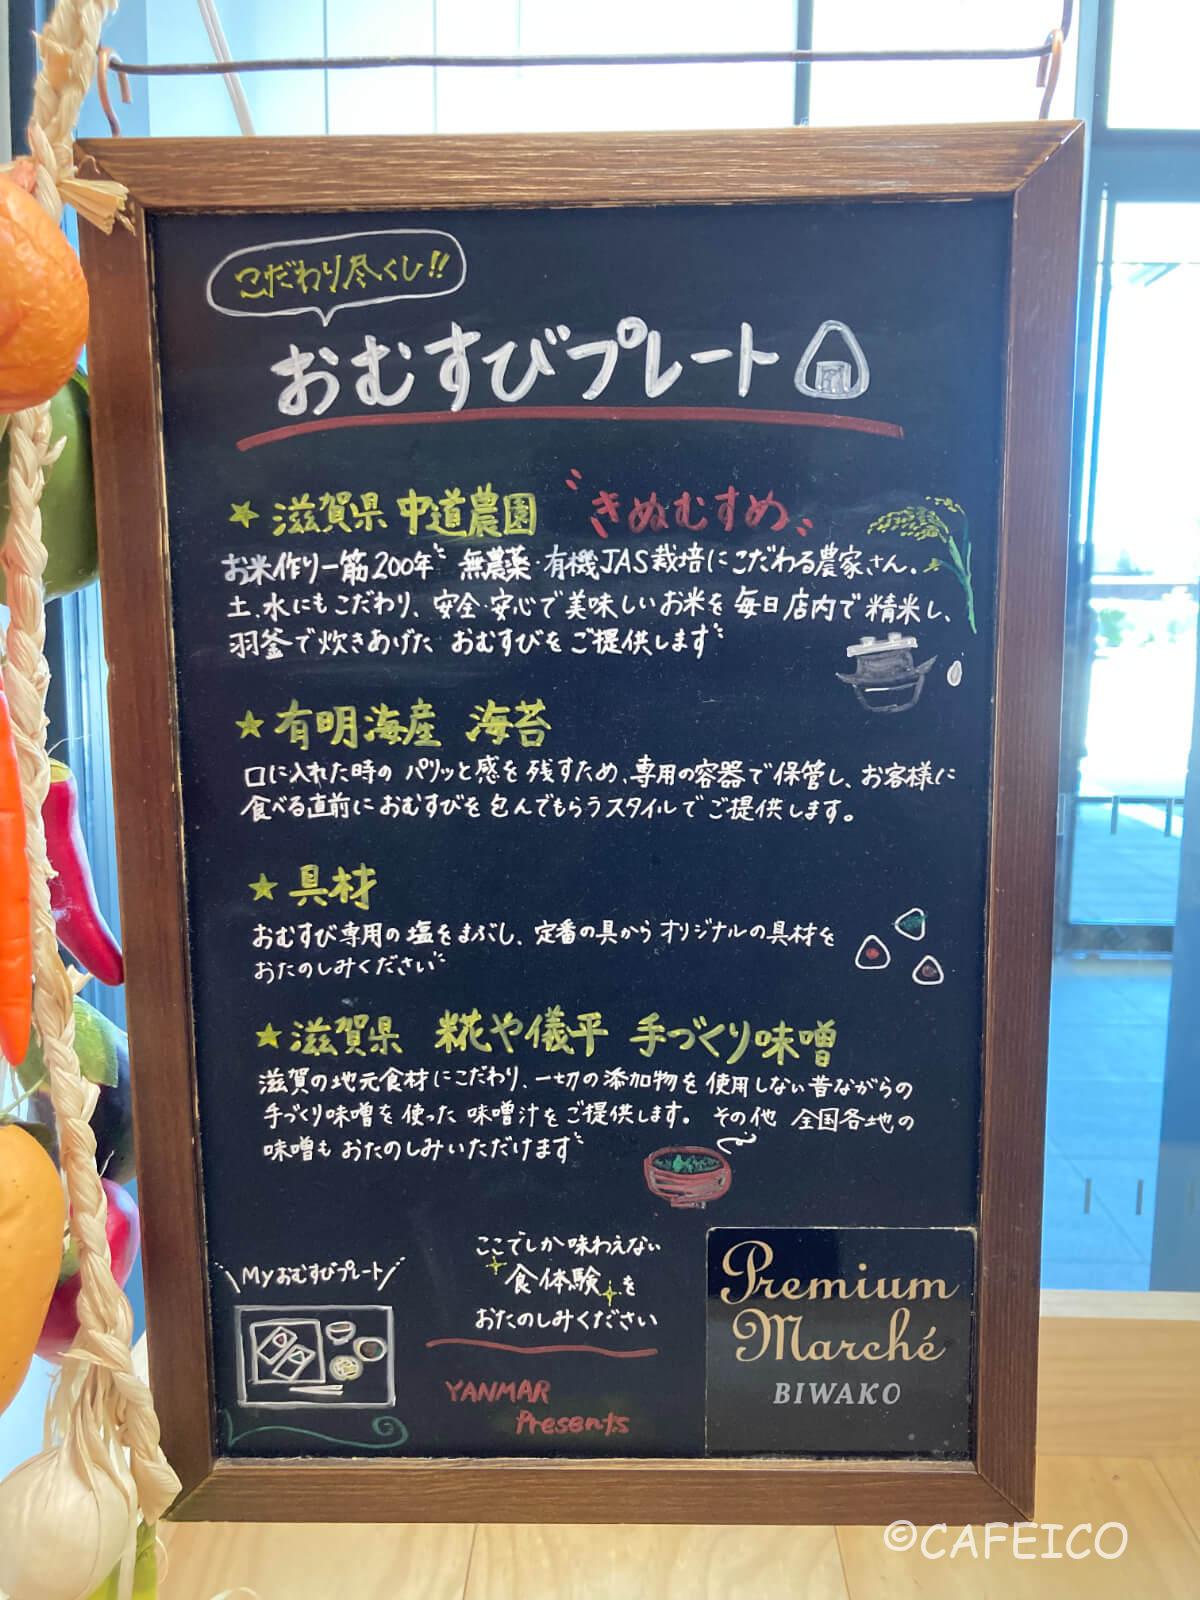 こだわり尽くし!!
おむすびプレート
★滋賀県 中道農園 〝きぬむすめ〟
お米作り一筋200年〟無農薬・有機JAS栽培にこだわる農家さん。
土、水にもこだわり、安全・安心で美味しいお米を毎日店内で精米し、
羽釜で炊きあげた おむすびをご提供します〟
★有明海産 海苔
口に入れた時の パリッと感を残すため、専用の容器で保管し、お客様に
食べる直前におむすびを包んでもらうスタイルでご提供します。
★具材
おむすび専用の塩をまぶし、定番の具からオリジナルの具材を
おたのしみください〟
★滋賀県 糀や儀平 手づくり味噌
滋賀の地元食材にこだわり、一切の添加物を使用しない昔ながらの
手づくり味噌を使った 味噌汁をご提供します。 その他 全国各地の
味噌も おたのしみいただけます〟
\Myおむすびプレート/
ここでしか味わえない
食体験を
おたのしみください
YANMAR
Presents
Premium
Marché
BIWAKO
©CAFEICO